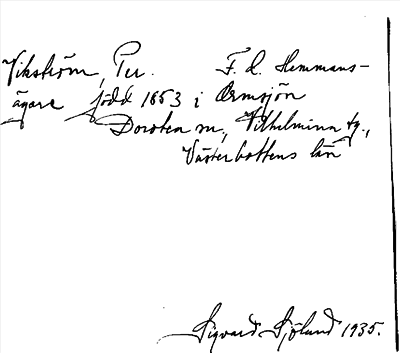 Vikström, Per. F. d. Hemmans-
ägare född 1853 i Ormsjön
Dorotea sn, Vilhelmina tg.,
Västerbottens län
Sigvard Sjölund 1935.